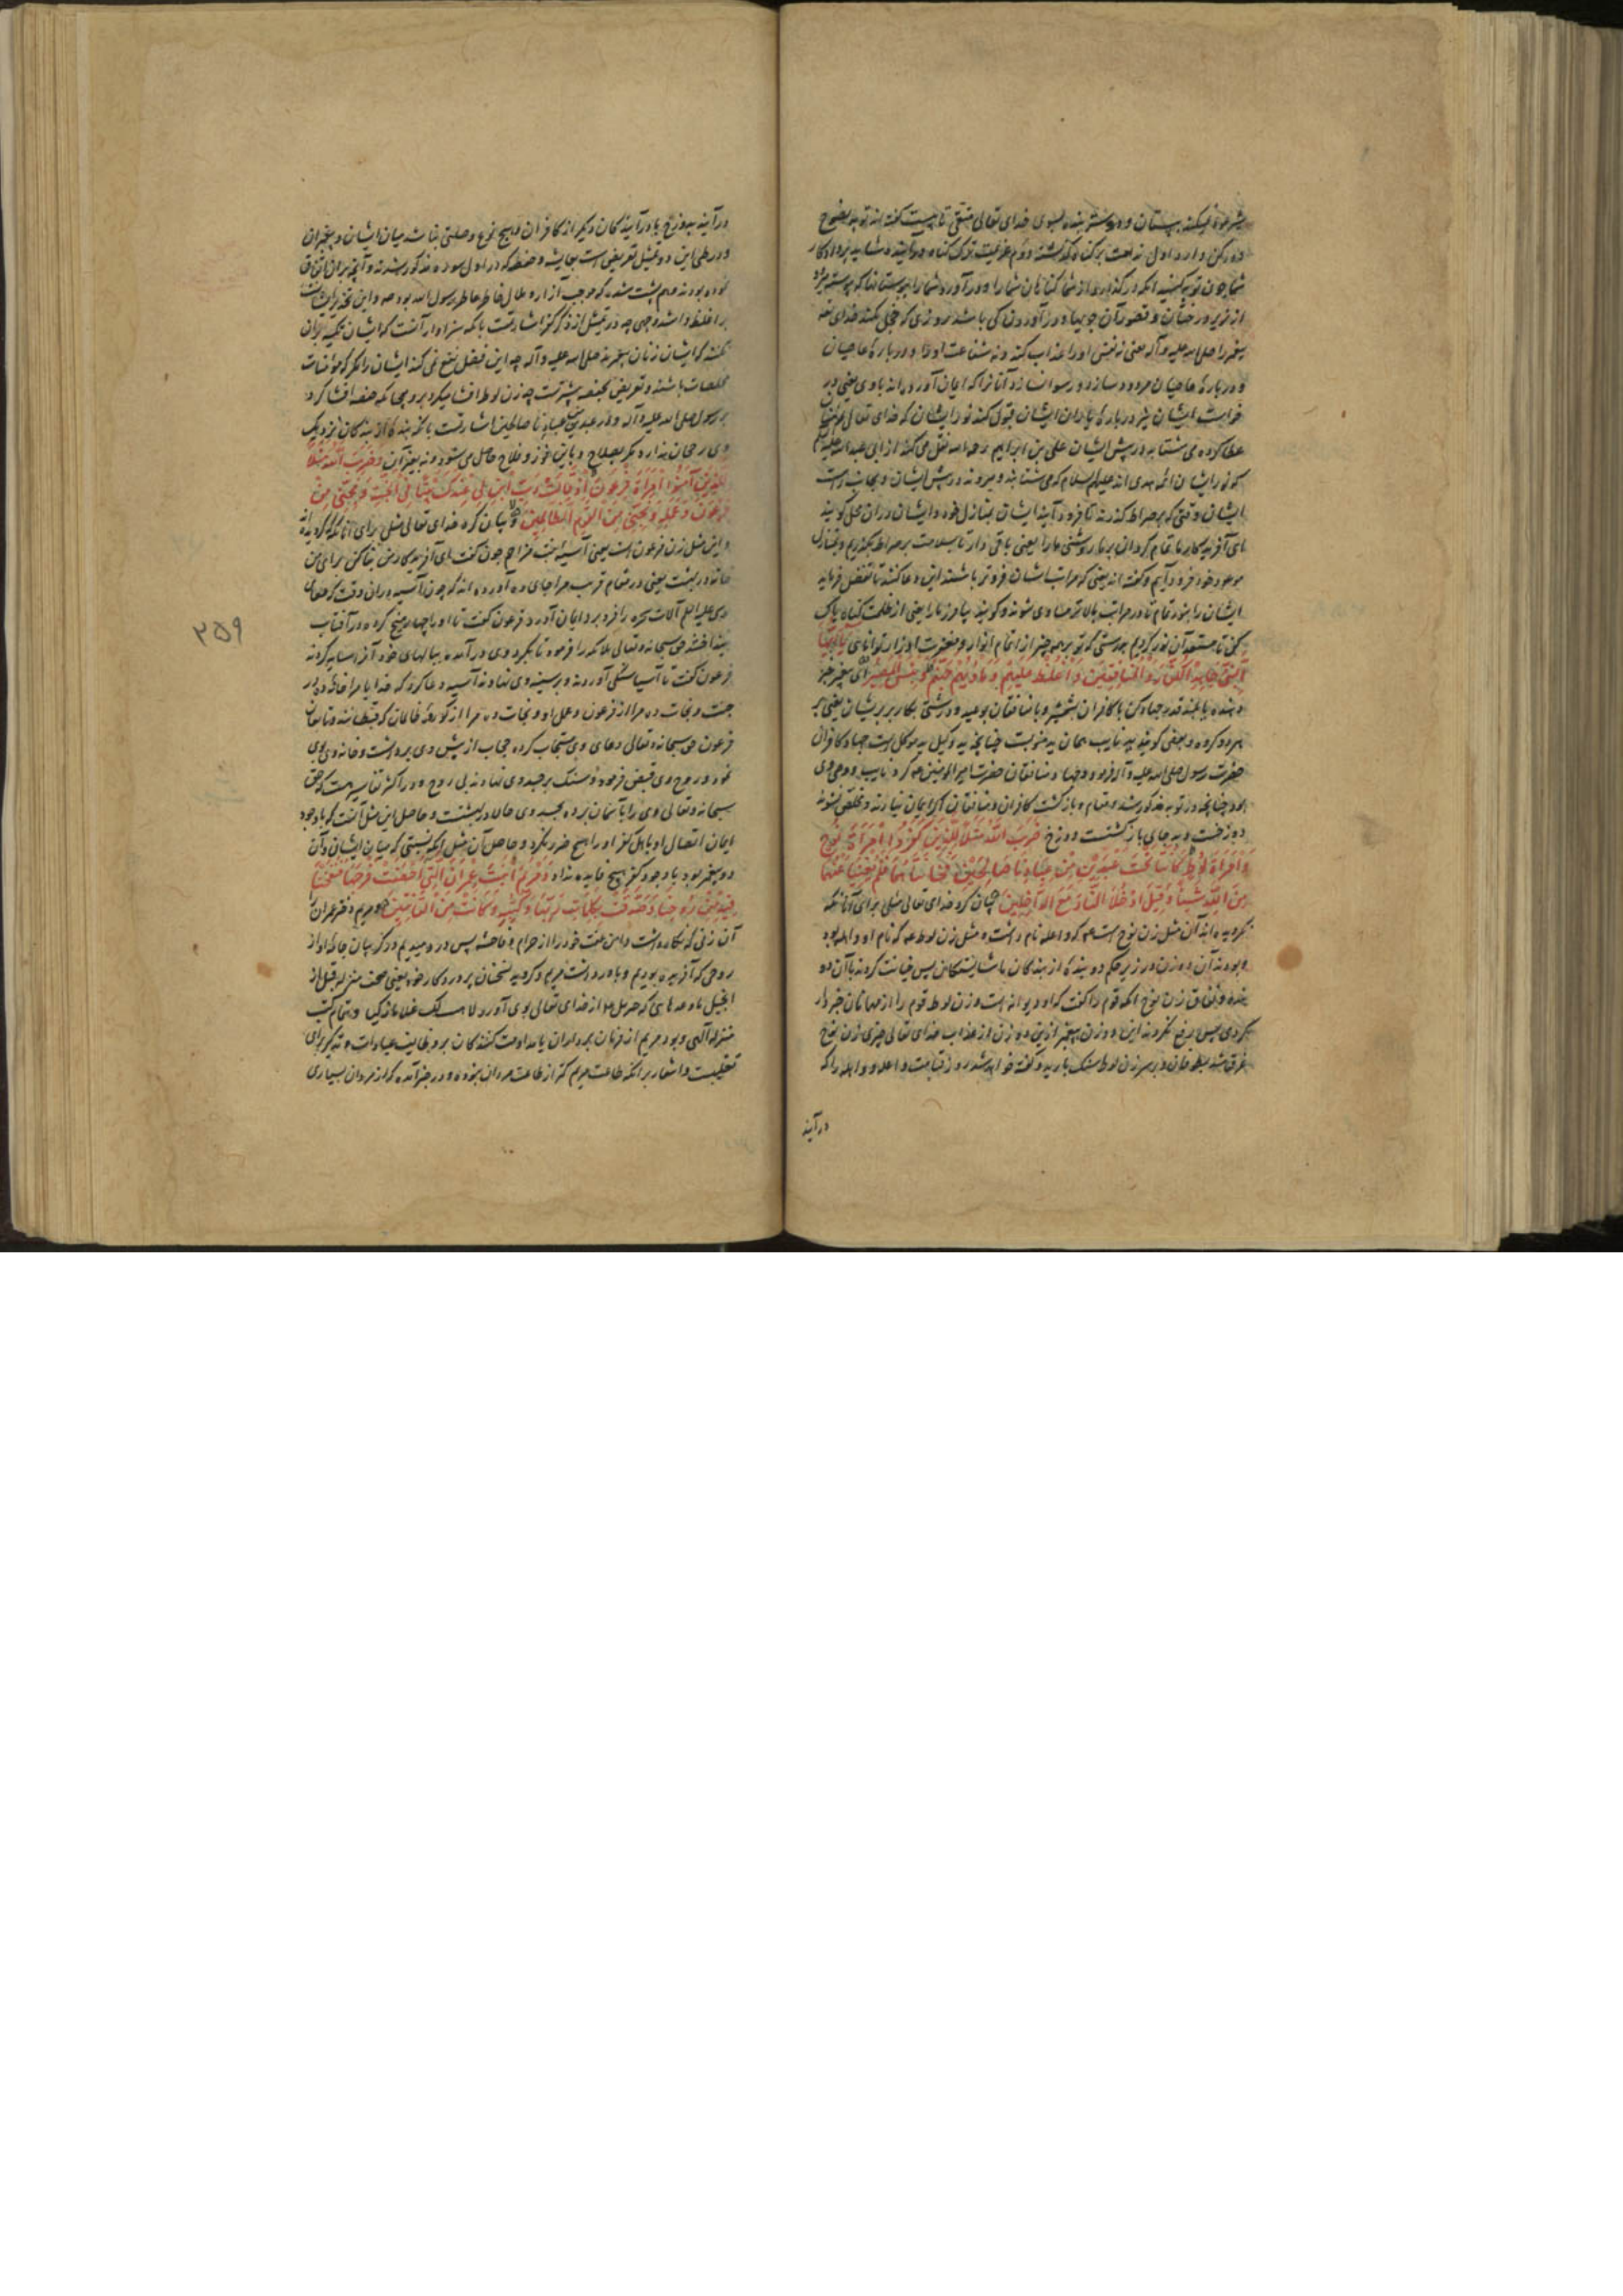 دو رکن دارد اول ندامت بر گناه گذشته دوم عزیمت ترک گناه در آینده شاید پروردگار
شما چون توبه کنید آنکه درگذراند از شما گناهان شما را و درآورد شما را ببوستانها که پیوسته میرود
از زیر درختان و قصور آن جویها و درآوردن کی باشد روزی که خجل نکند خدای تعالی
پیغمبر را صلی الله علیه و آله یعنی نه نفس او را عذاب کند و نه شفاعت او را در باره عاصیان
و در باره عاصیان مردود سازد و رسوا نسازد آنانرا که ایمان آورده‌اند با وی یعنی در
خواست ایشان نیز در باره یاران ایشان قبول کند نور ایشان که خدای تعالی بر ایشان
عطا کرده می شتابد در پیش ایشان علی بن ابراهیم رحمه الله نقل می کند از ابی عبدالله علیه السلام
که نور ایشان ائمه هدی اند علیهم السلام که می شتابند و میروند در پیش ایشان و بجانب راست
ایشان وقتی که بر صراط گذرند تا فرود آیند ایشان بمنازل خود و ایشان در آن محل گویند
ای آفریدگار ما تمام گردان برما روشنی ما را یعنی باقی دار تا بسلامت بر صراط بگذریم و بمنازل
موعود خود فرود آییم و گفته اند یعنی که مراتب ایشان فروتر باشند این دعا کنند تا تفضل فرماید
ایشان را بنور تمام تا در مراتب بالاتر مساوی شوند و گویند بیامرز ما را یعنی از ظلمت گناه پاک
کن تا مستعد آن نور گردیم بدرستی که تو بر همه چیز از اتمام انوار و مغفرت اوزار توانایی یا ایها
النبی جاهد الکفار و المنافقین و اغلظ علیهم و ماویهم جهنم و بئس المصیر ای پیغمبر خبر
دهنده یا بلند قدر جهاد کن با کافران بشمشیر و با منافقان بوعید و درشتی بکار بر بر ایشان یعنی بر
هر دو گروه و بعضی گویند ید نایب همان ید منوبست چنانچه ید وکیل ید موکل است جهاد کافران
حضرت رسول صلی الله علیه و آله فرمود و جهاد منافقان حضرت امیرالمؤمنین عم کرد نایب و وصی وی
بود چنانچه در توبه مذکور شد و مقام و بازگشت کافران و منافقان اگر ایمان نیارند و مخلص نشوند
دوزخست و بد جای بازگشتست دوزخ ضرب الله مثلا للذین کفروا امراة نوح
و امراة لوط کانتا تحت عبدین من عبادنا صالحین فخانتاهما فلم یغنیا عنهما
من الله شیئا و قیل ادخلا النار مع الداخلین بیان کرد خدای تعالی مثلی برای آنانکه
نگرویده اند آن مثل زن نوح است عم که واعله نام داشت و مثل زن لوط عم که نام او واهله بود
و بودند آن دو زن در زیر حکم دو بنده از بندگان ما شایستگان پس خیانت کردند با آن دو
بنده و نفاق زن نوح آنکه قوم را گفت که او دیوانه است و زن لوط قوم را از مهمانان خبردار
کردی پس دفع نکردند این دو زن پیغمبر ازین دو زن از عذاب خدای تعالی چیزی زن نوح
غرق شد بطوفان و بر سر زن لوط سنگ بارید و گفته خواهد شد روز قیامت واعله و واهله را که
درآیند
درآیند بدوزخ با درآیندگان دیگر از کافران و هیچ نوع وصلتی نباشد میان ایشان و پیغمبران
و در طی این دو تمثیل تعریض است بعایشه و حفصه که در اول سوره مذکور شدند و آنچه بر آن اتفاق
بر اغلظ و اشد وجهی چه در تمثیل از ذکر کفر اشارتست بآنکه سزاوار آنست که ایشان تکیه بر آن
نکنند که ایشان زنان پیغمبرند صلی الله علیه و آله چه این فضل نفع نمی کند ایشان را مگر که مؤمنات
مخلصات باشند و تعریض بحفصه بیشترست چه زن لوط افشا میکرد برو همچنانکه حفصه افشا کرد
بر رسول صلی الله علیه و آله و در عبدین من عبادنا صالحین اشارتست بآنکه بنده از بندگان نزدیک
وی رجحان ندارد مگر بصلاح و باین فوز و فلاح حاصل می شود و نه بغیر آن و ضرب الله مثلا
للذین آمنوا امراة فرعون اذ قالت رب ابن لی عندک بیتا فی الجنة و نجنی من
فرعون و عمله و نجنی من القوم الظالمین و بیان کرد خدای تعالی مثلی برای آنانکه گرویده اند
و این مثل زن فرعون است یعنی آسیه بنت مزاحم چون گفت ای آفریدگار من بنا کن برای من
خانه در بهشت یعنی در مقام قرب مرا جای ده آورده اند که چون آسیه در آن وقت که عصای
موسی علیه السلام آلات سحره را فرو برد ایمان آورد فرعون گفت تا او را چهار میخ کرده در آفتاب
بینداختند حق سبحانه و تعالی ملائکه را فرمود تا بگرد وی درآمده ببالهای خود آنرا سایه کردند
فرعون گفت تا آسیا سنگی آوردند و بر سینه وی نهادند آسیه دعا کرد که خدایا مرا خانه ده در
جنت و نجات ده مرا از فرعون و عمل او و نجات ده مرا از گروه ظالمان که قبطیانند و تابعان
فرعون حق سبحانه و تعالی دعای وی مستجاب کرده حجاب از پیش وی برداشت و خانه وی بوی
نمود و روح وی قبض فرمود و سنگ بر جسد وی نهادند بی روح و در اکثر تفاسیر هست که حق
سبحانه و تعالی وی را بآسمان برده بجسد وی حالا در بهشتست و حاصل این مثل آنست که با وجود
ایمان اتصال او باهل کفر او را هیچ ضرر نکرد و حاصل آن مثل آنکه نسبتی که میان ایشان و آن
دو پیغمبر بود با وجود کفر هیچ فایده نداد و مریم ابنت عمران التی احصنت فرجها فنفخنا
فیه من روحنا و صدقت بکلمات ربها و کتبه و کانت من القانتین و مریم دختر عمران
آن زنی که نگاه داشت دامن عفت خود را از حرام و فاحشه پس در دمیدیم در گریبان جامه او از
روحی که آفریده بودیم و باور داشت مریم و گروید بسخنان پروردگار خود یعنی صحف منزله قبل از
انجیل یا وعدهایی که جبرئیل عم از خدای تعالی بوی آورد لاهب لک غلاما زکیا و بتمام کتب
منزله آلهی و بود مریم از فرمان برداران یا مداومت کنندگان بر وظایف عبادات و تذکیر برای
تغلیبست و اشعار بر آنکه طاعت مریم کمتر از طاعت مردان نبوده و در خبر آمده که از مردان بسیاری
۳۵۹